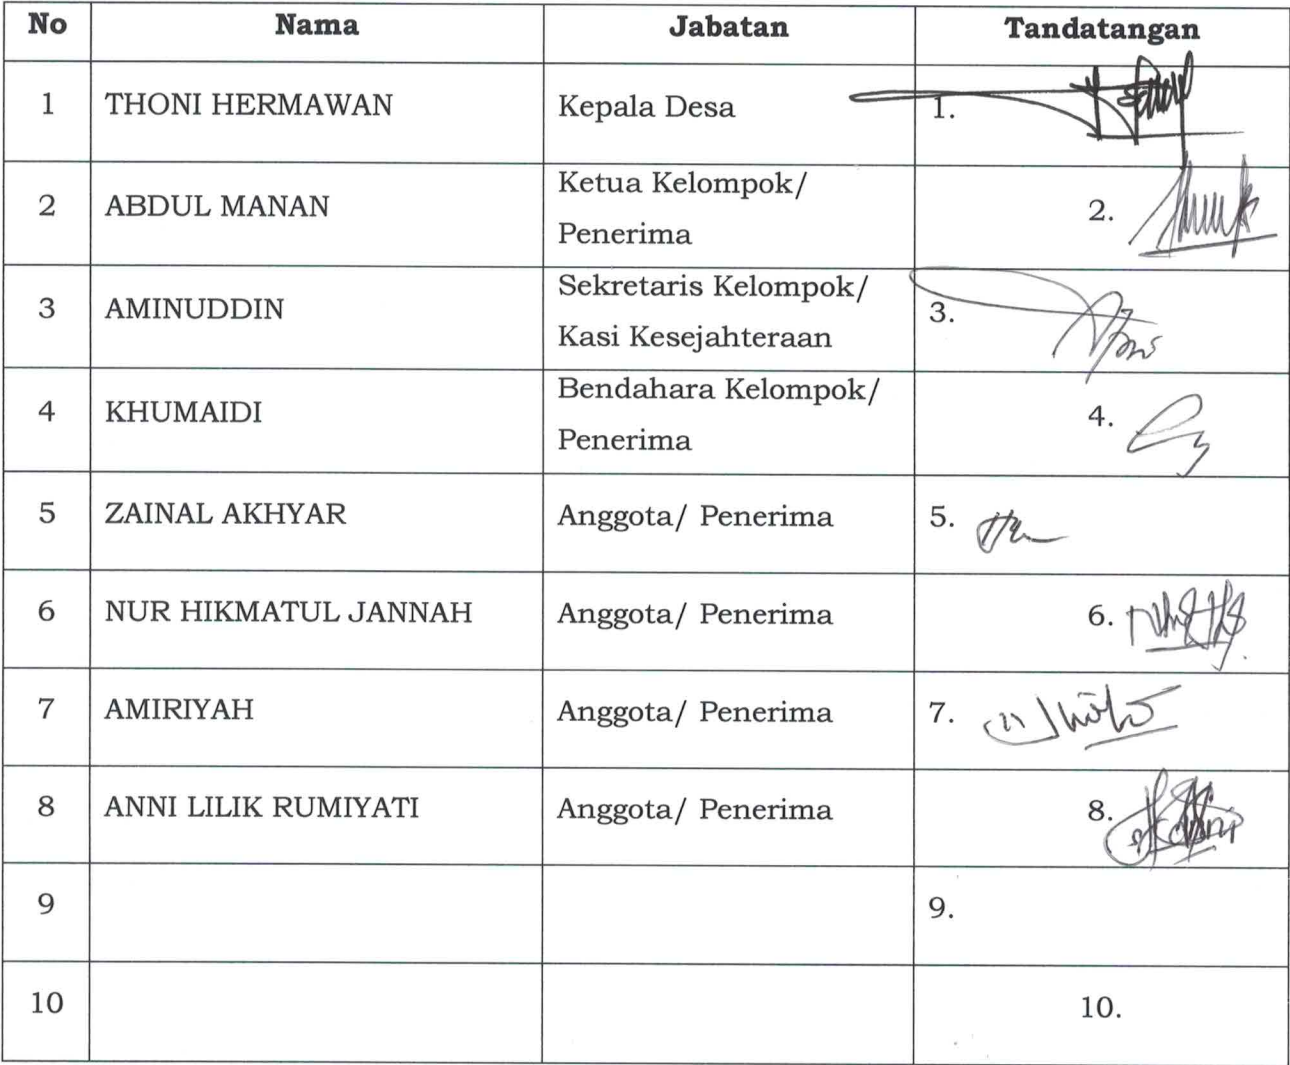 No Nama Jabatan Tandatangan
1 THONI HERMAWAN Kepala Desa 1.
2 ABDUL MANAN Ketua Kelompok/
Penerima 2.
3 AMINUDDIN Sekretaris Kelompok/
Kasi Kesejahteraan 3.
4 KHUMAIDI Bendahara Kelompok/
Penerima 4.
5 ZAINAL AKHYAR Anggota/ Penerima 5.
6 NUR HIKMATUL JANNAH Anggota/ Penerima 6.
7 AMIRIYAH Anggota/ Penerima 7.
8 ANNI LILIK RUMIYATI Anggota/ Penerima 8.
9 9.
10 10.